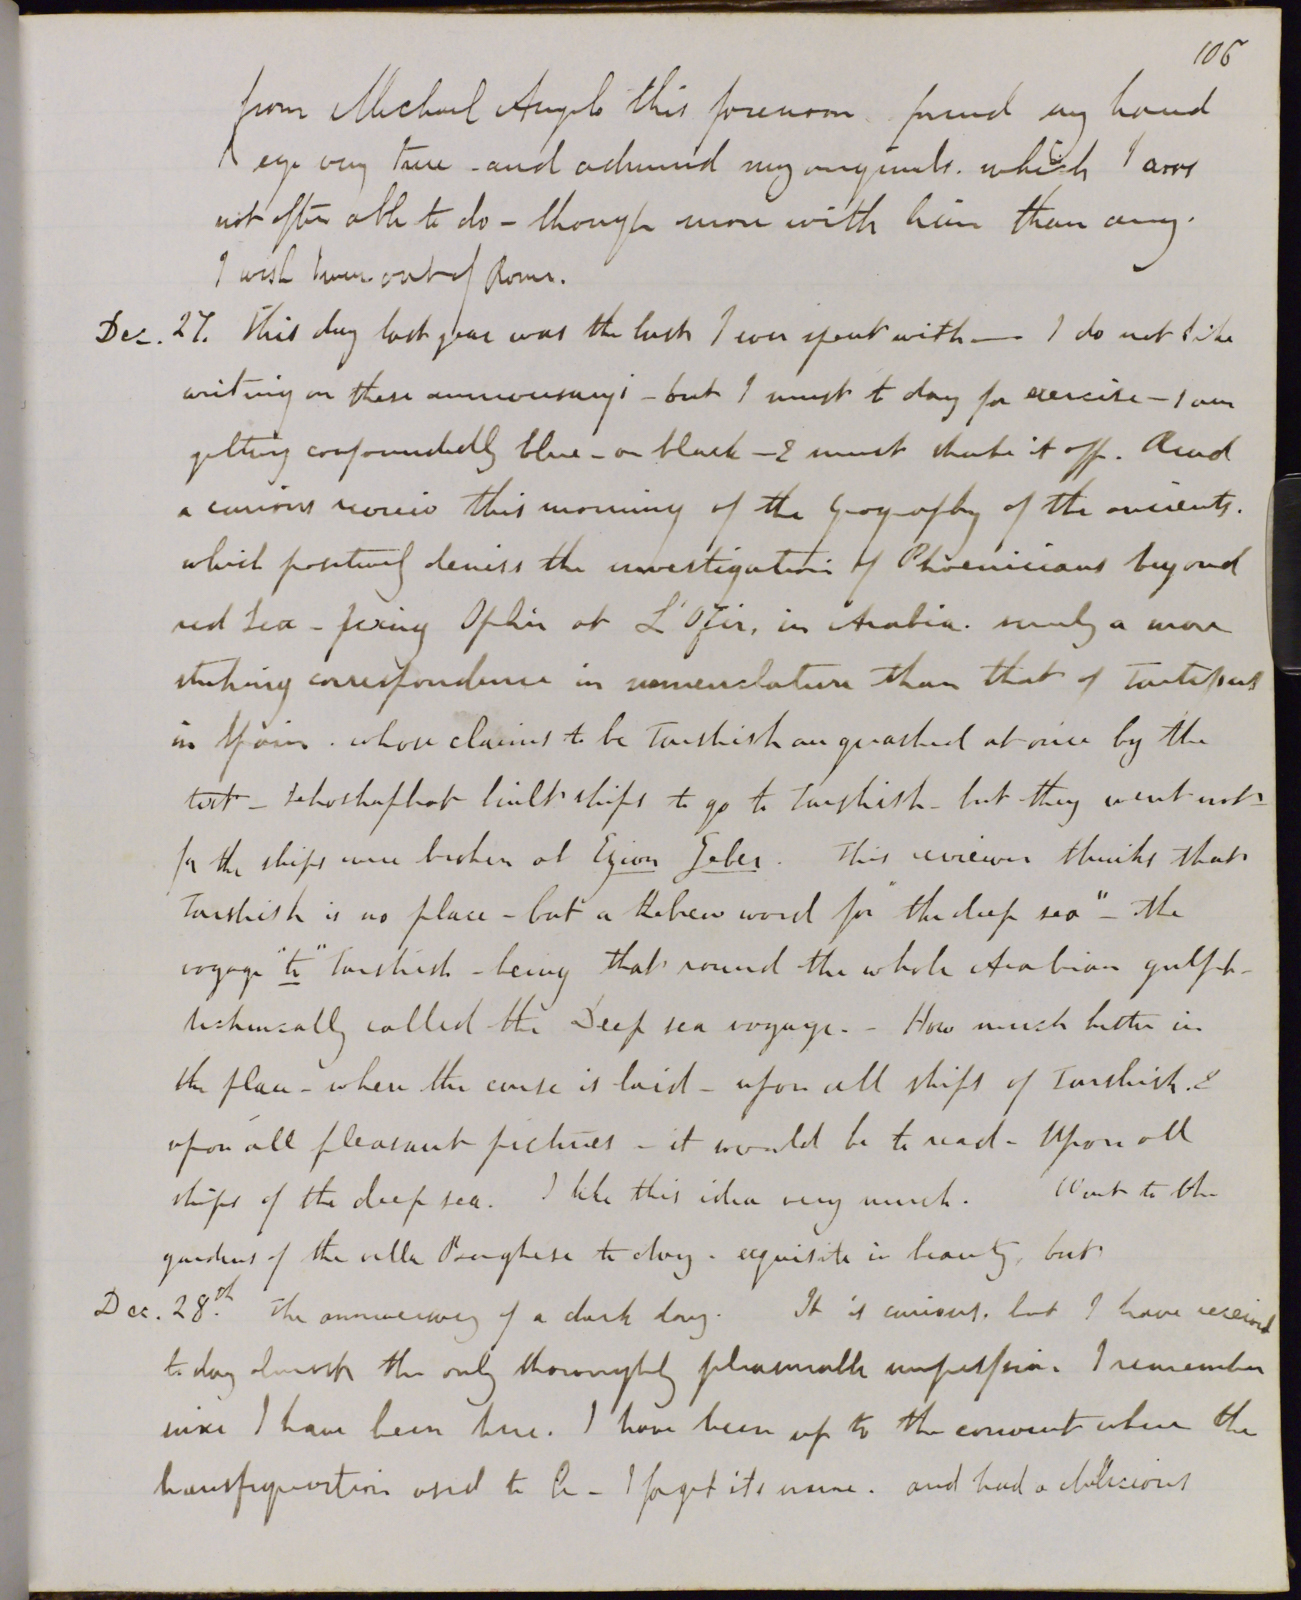 106
from Michael Angelo this forenoon found my hand
& eye very true - and admired my originals. which I was
not often able to do - though more with him than any.
I wish I were out of Rome.
Dec. 27. This day last year was the last I ever spent with — I do not like
writing on these anniversarys - but I must to day for exercise - I am
getting confoundedly blue - or black - & must shake it off. Read
a curious review this morning of the Geography of the ancients.
which positively denies the investigation of Phoenicians beyond
red Sea - fixing Ophir at L'Ofir, in Arabia. surely a more
striking correspondence in nomenclature than that of Tartessus
in Spain. whose claims to be Tarshish are quashed at once by the
text - Jehoshaphat built ships to go to Tarshish - but they went not
for the ships were broken at Ezion Geber. This reviewer thinks that
Tarshish is no place - but a Hebrew word for "the deep sea" - the
voyage "to" Tarshish - being that round the whole Arabian gulph -
technically called the Deep sea voyage. - How much better in
the place - where the curse is laid - upon all ships of Tarshish. &
upon all pleasant pictures - it would be to read - Upon all
ships of the deep sea. I like this idea very much. Went to the
gardens of the villa Borghese to day - exquisite in beauty, but
Dec. 28.th The anniversary of a dark day. It is curious, but I have received
to day almost the only thoroughly pleasurable impression I remember
since I have been here. I have been up to the convent where the
transfiguration used to be - I forget its name. and had a delicious